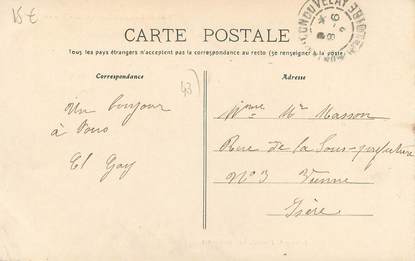 15 €
CARTE POSTALE
Tous les pays étrangers n'acceptent pas la correspondance au recto (se renseigner à la poste)
Correspondance
Adresse
43
Un bonjour
à vous
El Gay
Mme Mr Masson
Rue de la Sous-préfecture
No 3 Vienne
Isère